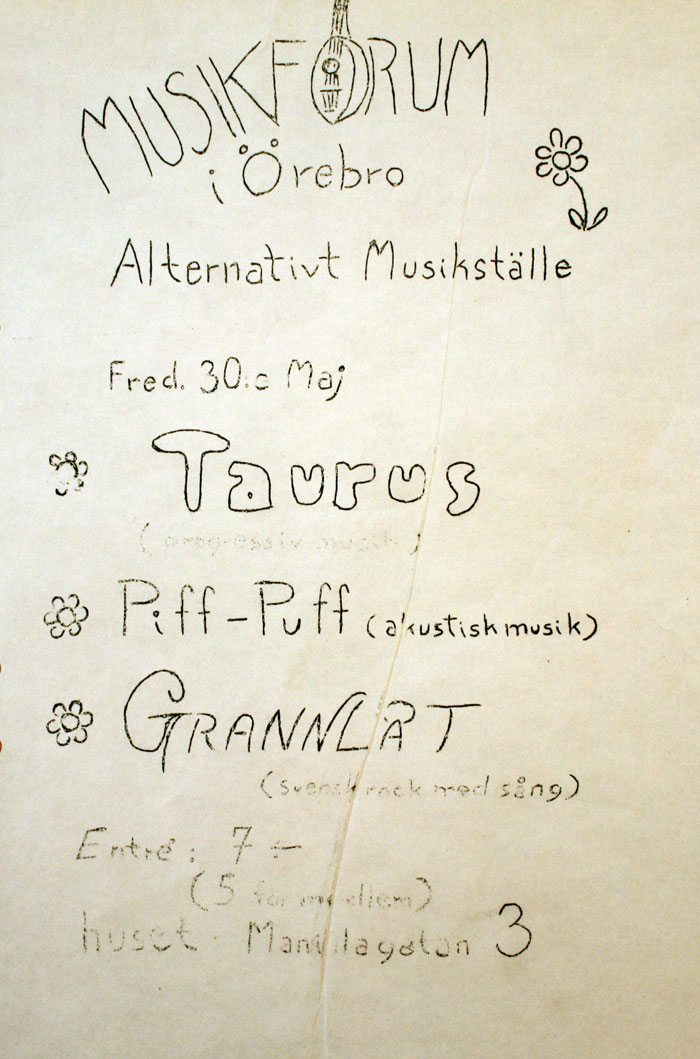 MUSIKFORUM
i Örebro
Alternativt Musikställe
Fred. 30:e Maj
Taurus
(progressiv musik)
Piff-Puff (akustisk musik)
GRANNLÅT
(svensk rock med sång)
Entré: 7:-
(5 för medlem)
huset. Manillagatan 3